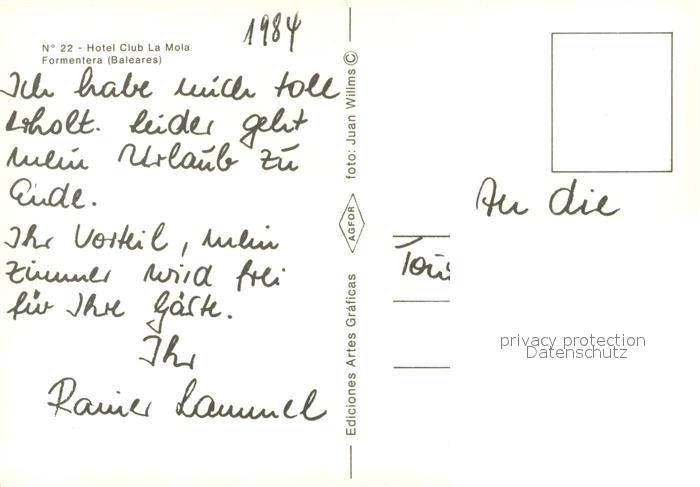 1984
N° 22 - Hotel Club La Mola
Formentera (Baleares)
Ich habe mich toll
erholt. Leider geht
mein Urlaub zu
Ende.
Ihr Vorteil, mein
Zimmer wird frei
für Ihre Gäste.
Ihr
Rainer Lammel
Ediciones Artes Gráficas
AGFOR
foto: Juan Willms ©
An die
Tou
privacy protection
Datenschutz